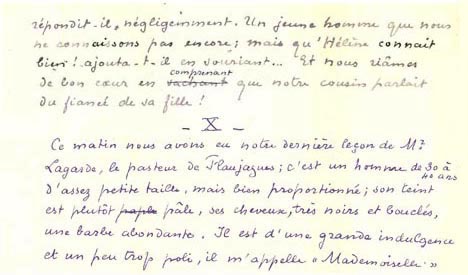 répondit-il, négligeinment. Un jeune homme que nous
ne connaissons pas encore; mais qu'Hélène connait
bien! ajouta-t-il en souriant... Et nous rîames
de bon cœur en sachant comprenant que notre cousin parlait
du fiancé de sa fille!
- X -
Ce matin nous avons eu notre dernière leçon de Mr
Lagarde, le pasteur de Flaujagues; c'est un homme de 30 à 40 ans
d'assez petite taille, mais bien proportionné; son teint
est plutôt pâle, ses cheveux, très noirs et bouclés,
une barbe abondante. Il est d'une grande indulgence
et un peu trop poli, il m'appelle "Mademoiselle."